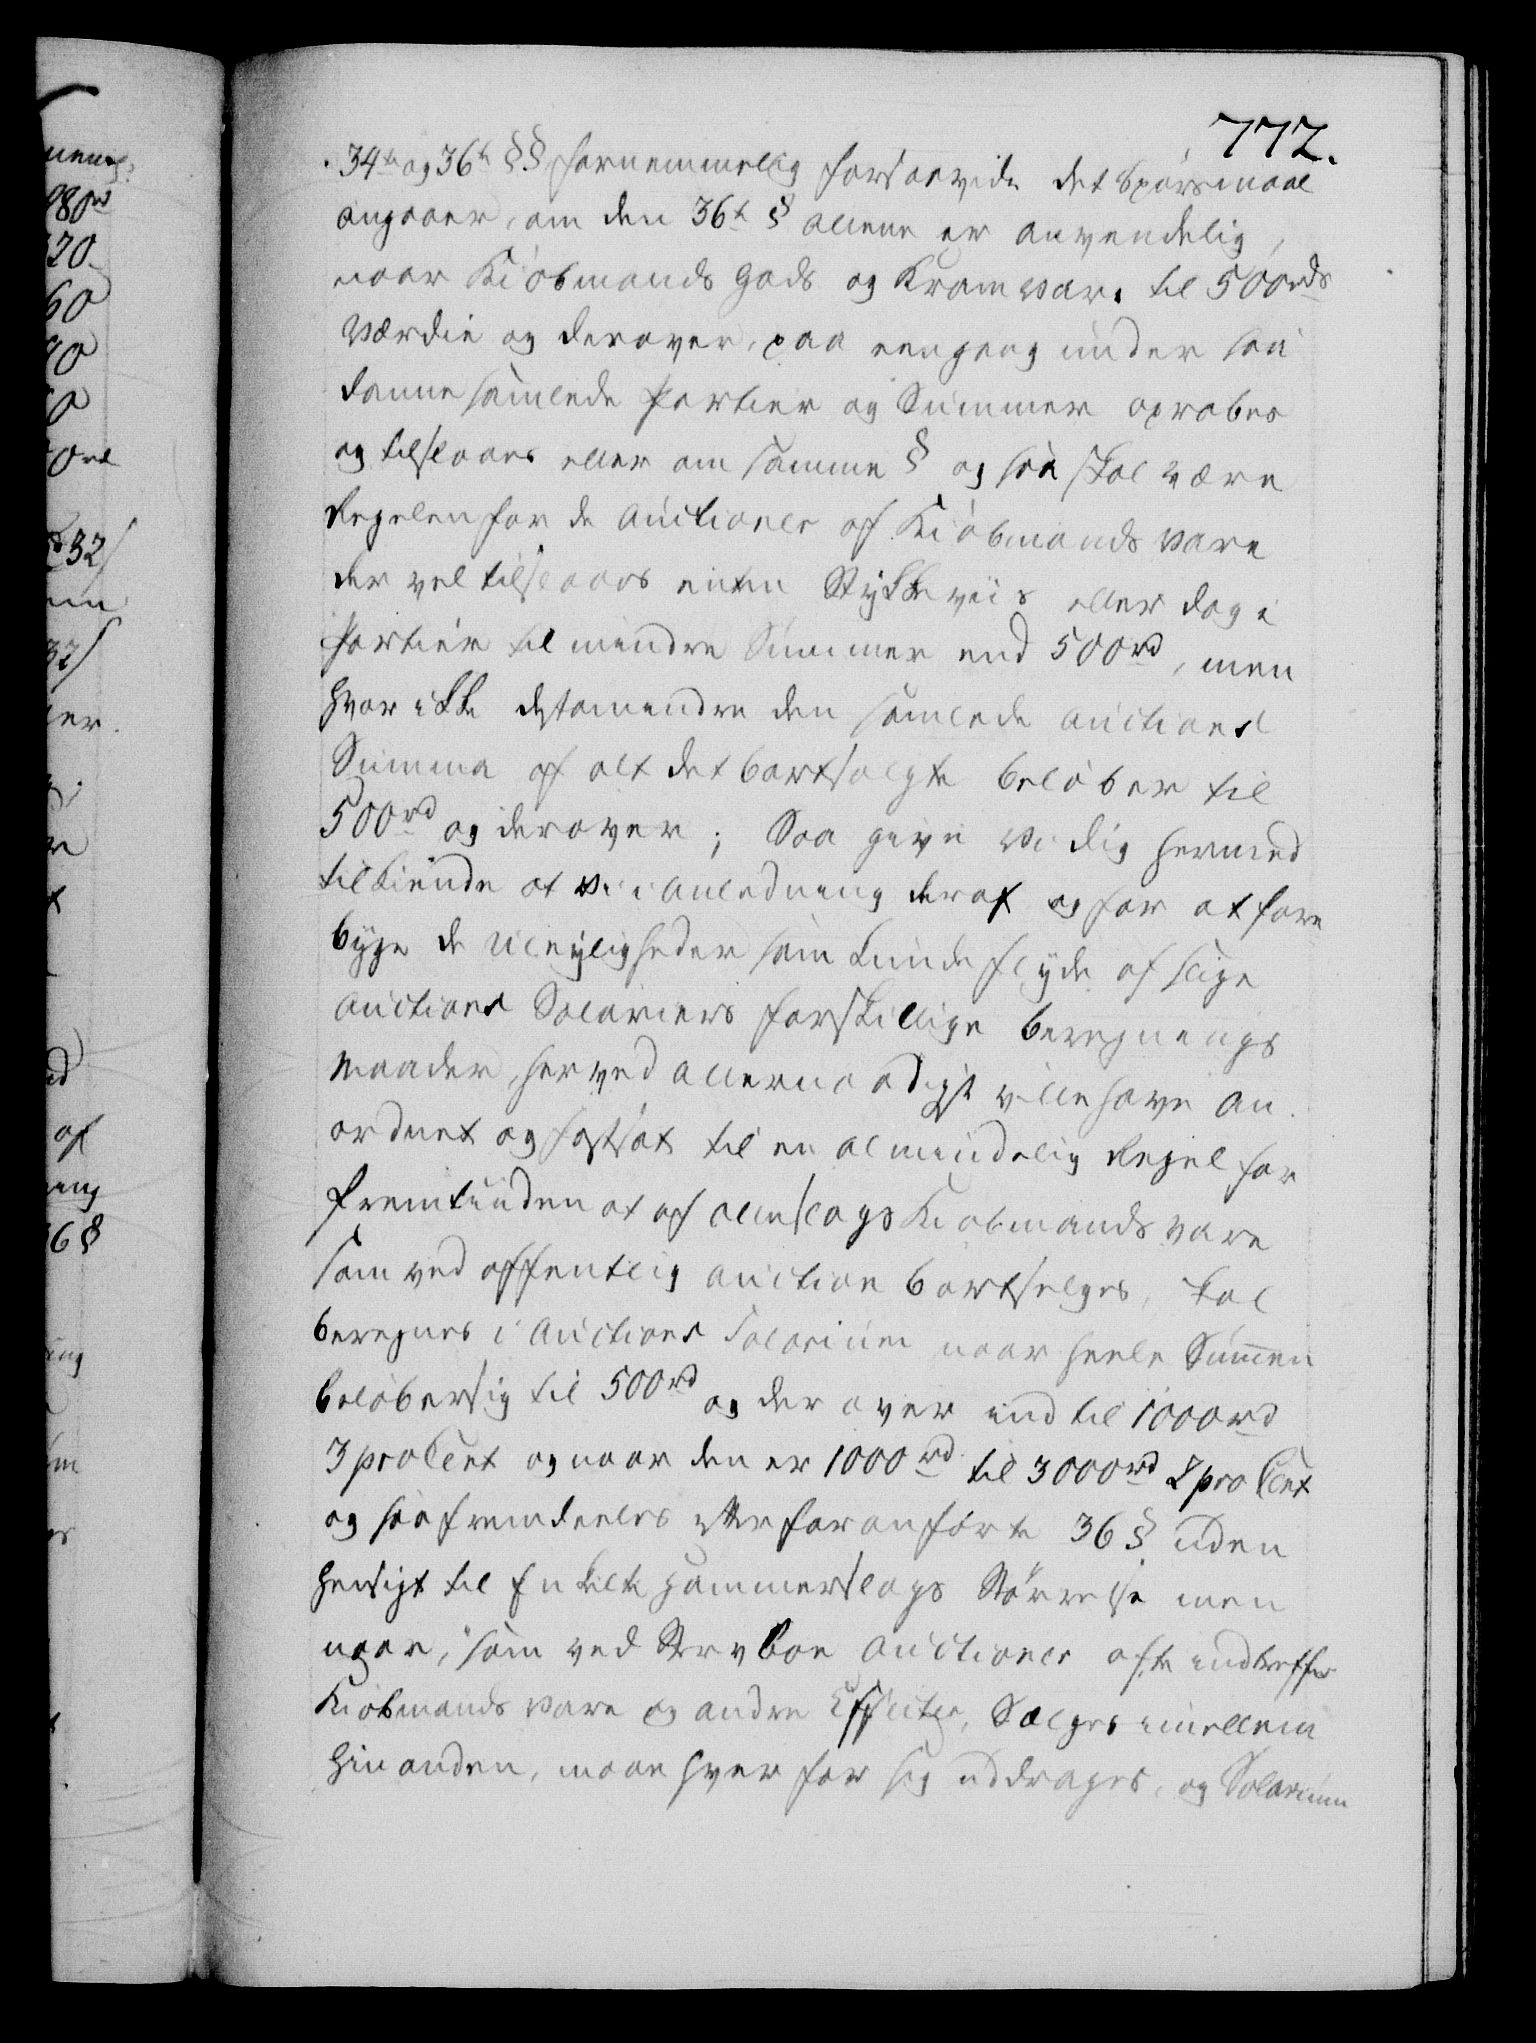 772.
34te og 36te §§ fornemmelig forsaavidt det Spørsmaal
angaaer, om den 36te § allene er anvendelig,
naar Kiøbmands Gods og Kramvare til 500rds
Værdie og derover, paa eengang under saa
danne samlede Partier og Summer opraabes
og tilslaaes eller om samme § og saa skal være
Regelen for de Auctioner af Kiøbmands Vare
der vel tilslaaes enten Stykkeviis eller dog i
Partier til mindre Summer end 500rd, men
hvor ikke destomindre den samlede Auctions
Summa af alt det bortsolgte beløber til
500rd og derover; Saa give Vi dig hermed
tilkiende at Vi i Anledning deraf og for at fore
byge de Uleyligheder som kunde flyde af slige
Auctions Salariers forskillige beregnings
Maader, herved allernaadigst ville have an
ordnet og fastsat til en almindelig Regel for
Fremtiiden at af alleslags Kiøbmands Vare
som ved offentlig Auction bortselges, skal
beregnes i Auctions Salarium naar heele Sum̅en
beløber sig til 500rd og der over ind til 1000rd
3 pro Cent og naar den er 1000rd til 3000rd 2 pro Cent
og saa fremdeeles efter foranførte 36 § uden
Hensigt til Enkelte Hammerslags Størrelse men
naar, som ved Stervboe Auctioner ofte indtreffer
Kiøbmands Vare og andre Effecter, Sælges imellem
hinanden, maae hver for sig uddrages, og Salarium